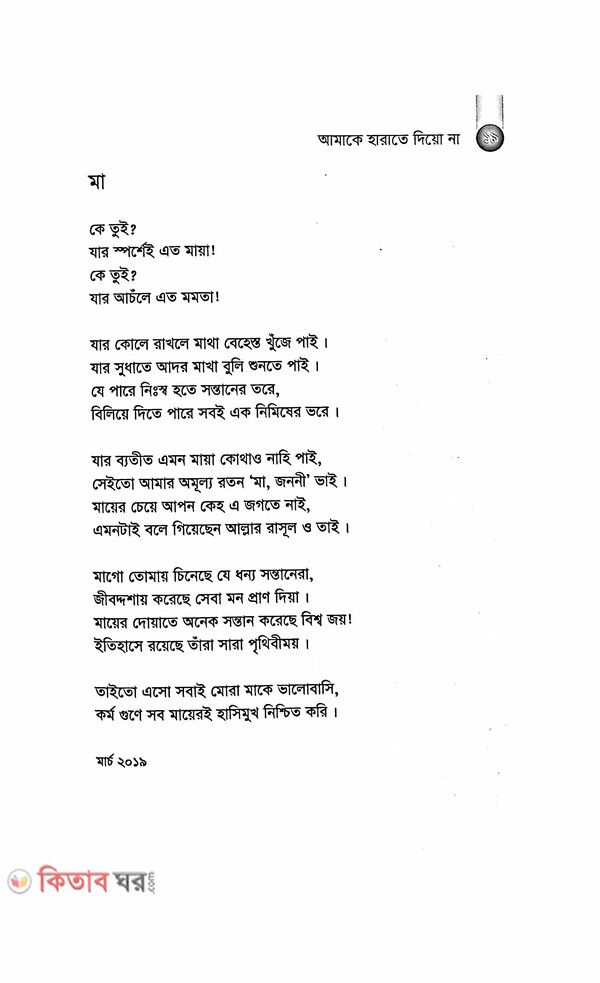 আমাকে হারাতে দিয়ো না ১৯
মা
কে তুই?
যার স্পর্শেই এত মায়া!
কে তুই?
যার আচঁলে এত মমতা!
যার কোলে রাখলে মাথা বেহেস্ত খুঁজে পাই।
যার সুধাতে আদর মাখা বুলি শুনতে পাই।
যে পারে নিঃস্ব হতে সন্তানের তরে,
বিলিয়ে দিতে পারে সবই এক নিমিষের ভরে।
যার ব্যতীত এমন মায়া কোথাও নাহি পাই,
সেইতো আমার অমূল্য রতন ‘মা, জননী’ ভাই।
মায়ের চেয়ে আপন কেহ এ জগতে নাই,
এমনটাই বলে গিয়েছেন আল্লার রাসূল ও তাই।
মাগো তোমায় চিনেছে যে ধন্য সন্তানেরা,
জীবদ্দশায় করেছে সেবা মন প্রাণ দিয়া।
মায়ের দোয়াতে অনেক সন্তান করেছে বিশ্ব জয়!
ইতিহাসে রয়েছে তাঁরা সারা পৃথিবীময়।
তাইতো এসো সবাই মোরা মাকে ভালোবাসি,
কর্ম গুণে সব মায়েরই হাসিমুখ নিশ্চিত করি।
মার্চ ২০১৯
কিতাব ঘর.com